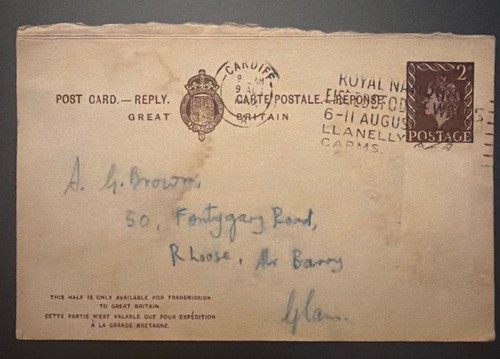 CARDIFF
9 AM
ROYAL NATIONAL
EISTEDDFOD
6-11 AUGUST
LLANELLY
CARMS.
2D
POSTAGE
POST CARD.—REPLY. CARTE POSTALE.—RÉPONSE.
GREAT BRITAIN
A. G. Brown,
50, Fontygary Road,
Rhoose, Nr Barry
Glam.
THIS HALF IS ONLY AVAILABLE FOR TRANSMISSION
TO GREAT BRITAIN.
CETTE PARTIE N'EST VALABLE QUE POUR EXPÉDITION
À LA GRANDE-BRETAGNE.